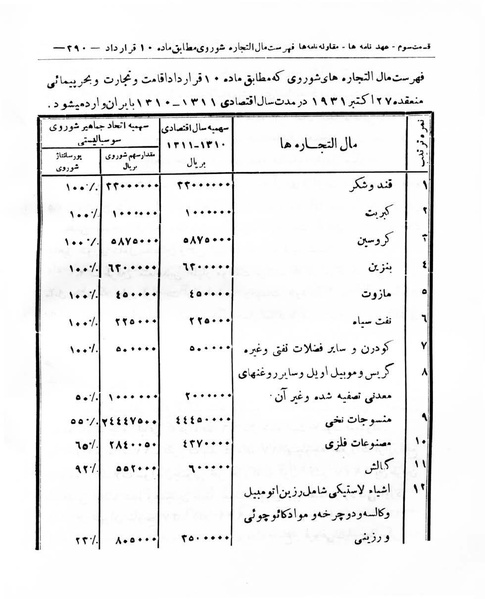 قسمت سوم - عهد نامه ها - مقاوله نامه ها فهرست مال التجاره شوروی مطابق ماده ۱۰ قرارداد — ۲۹۰ —
فهرست مال التجاره های شوروی که مطابق ماده ۱۰ قرارداد اقامت و تجارت و بحر پیمائی
منعقده ۲۷ اکتبر ۱۹۳۱ در مدت سال اقتصادی ۱۳۱۱-۱۳۱۰ با ایران وارد میشود.
نمره ترتیب | مال التجاره ها | سهمیه سال اقتصادی ۱۳۱۰-۱۳۱۱ بریال | سهمیه اتحاد جماهیر شوروی سوسیالیستی
مقدار سهم شوروی بریال | پورسانتاژ شوروی
۱ | قند و شکر | ۲۲۰۰۰۰۰۰ | ۲۲۰۰۰۰۰۰ | ۱۰۰٪
۲ | کبریت | ۱۰۰۰۰۰۰ | ۱۰۰۰۰۰۰ | ۱۰۰٪
۳ | کروسین | ۵۸۷۵۰۰۰ | ۵۸۷۵۰۰۰ | ۱۰۰٪
۴ | بنزین | ۶۳۰۰۰۰۰ | ۶۳۰۰۰۰۰ | ۱۰۰٪
۵ | مازوت | ۴۵۰۰۰۰ | ۴۵۰۰۰۰ | ۱۰۰٪
۶ | نفت سیاه | ۲۲۵۰۰۰ | ۲۲۵۰۰۰ | ۱۰۰٪
۷ | کودرن و سایر فضلات نفتی وغیره | ۵۰۰۰۰۰ | ۵۰۰۰۰۰ | ۱۰۰٪
۸ | گریس و موبیل اویل و سایر روغنهای
معدنی تصفیه شده و غیر آن | ۲۰۰۰۰۰۰ | ۱۰۰۰۰۰۰ | ۵۰٪
۹ | منسوجات نخی | ۴۴۴۵۰۰۰۰ | ۲۴۴۴۷۵۰۰ | ۵۵٪
۱۰ | مصنوعات فلزی | ۴۳۷۰۰۰۰ | ۲۸۴۰۰۵۰ | ۶۵٪
۱۱ | گالش | ۶۰۰۰۰۰ | ۵۵۲۰۰۰ | ۹۲٪
۱۲ | اشیاء لاستیکی شامل رزین اتومبیل
و کالسه و دوچرخه و مواد کائوچوئی
و رزینی | ۳۵۰۰۰۰۰ | ۸۰۵۰۰۰ | ۲۳٪